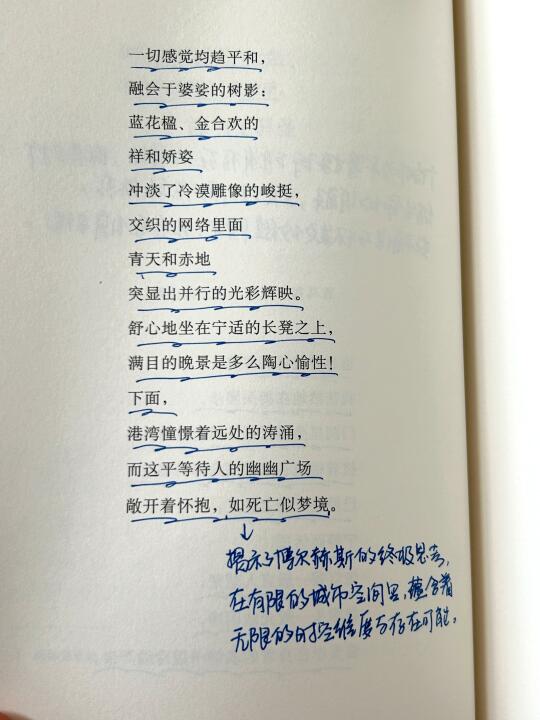 一切感觉均趋平和，
融会于婆娑的树影：
蓝花楹、金合欢的
祥和娇姿
冲淡了冷漠雕像的峻挺，
交织的网络里面
青天和赤地
突显出并行的光彩辉映。
舒心地坐在宁适的长凳之上，
满目的晚景是多么陶心愉性！
下面，
港湾憧憬着远处的涛涌，
而这平等待人的幽幽广场
敞开着怀抱，如死亡似梦境。
揭示了博尔赫斯的终极思考，
在有限的城市空间里，蕴含着
无限的时空维度与存在可能。